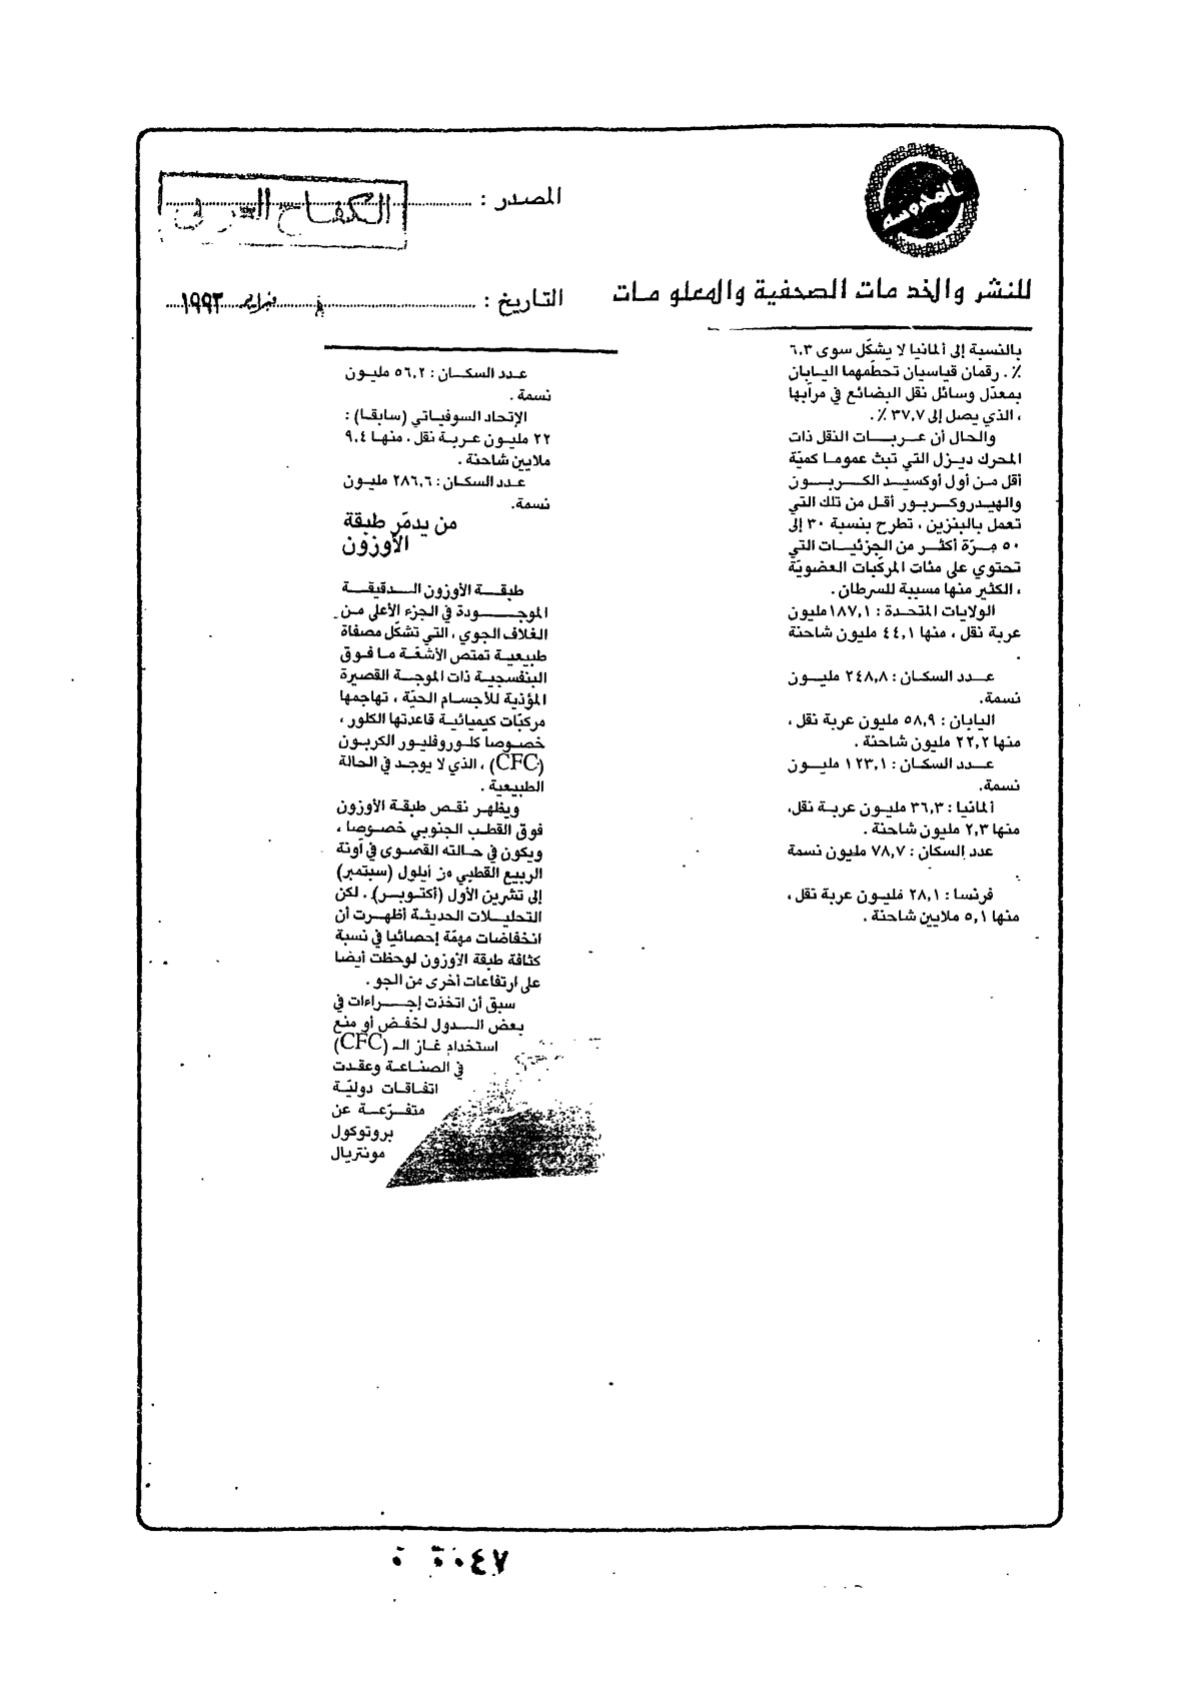 المصدر : الكفاح العربي
للنشر والخدمات الصحفية والمعلومات
التاريخ : فبراير ١٩٩٢
بالنسبة إلى ألمانيا لا يشكّل سوى ٦,٣
٪ . رقمان قياسيان تحطّمهما اليابان
بمعدّل وسائل نقل البضائع في مرآبها
، الذي يصل إلى ٣٧,٧ ٪ .
والحال أن عربات النقل ذات
المحرك ديزل التي تبث عموما كميّة
أقل من أول أوكسيد الكربون
والهيدروكربور أقل من تلك التي
تعمل بالبنزين ، تطرح بنسبة ٣٠ إلى
٥٠ مرّة أكثر من الجزئيات التي
تحتوي على مئات المركّبات العضويّة
، الكثير منها مسببة للسرطان .
الولايات المتحدة : ١٨٧,١ مليون
عربة نقل ، منها ٤٤,١ مليون شاحنة
.
عدد السكان : ٢٤٨,٨ مليون
نسمة.
اليابان : ٥٨,٩ مليون عربة نقل ،
منها ٢٢,٢ مليون شاحنة .
عدد السكان : ١٢٣,١ مليون
نسمة.
ألمانيا : ٣٦,٣ مليون عربة نقل،
منها ٢,٣ مليون شاحنة .
عدد السكان : ٧٨,٧ مليون نسمة
.
فرنسا : ٢٨,١ مليون عربة نقل ،
منها ٥,١ ملايين شاحنة .
عدد السكان : ٥٦,٢ مليون
نسمة .
الإتحاد السوفياتي (سابقا) :
٢٢ مليون عربة نقل . منها ٩,٤
ملايين شاحنة .
عدد السكان : ٢٨٦,٦ مليون
نسمة.
من يدمّر طبقة
الأوزون
طبقة الأوزون الدقيقة
الموجودة في الجزء الأعلى من
الغلاف الجوي ، التي تشكّل مصفاة
طبيعية تمتص الأشعّة ما فوق
البنفسجية ذات الموجة القصيرة
المؤذية للأجسام الحيّة ، تهاجمها
مركبّات كيميائية قاعدتها الكلور ،
خصوصا كلوروفليور الكربون
(CFC) ، الذي لا يوجد في الحالة
الطبيعية .
ويظهر نقص طبقة الأوزون
فوق القطب الجنوبي خصوصا ،
ويكون في حالته القصوى في آونة
الربيع القطبي من أيلول (سبتمبر)
إلى تشرين الأول (أكتوبر) . لكن
التحليلات الحديثة أظهرت أن
انخفاضات مهمّة إحصائيا في نسبة
كثافة طبقة الأوزون لوحظت أيضا
على ارتفاعات أخرى من الجو .
سبق أن اتخذت إجراءات في
بعض الدول لخفض أو منع
استخدام غاز الـ (CFC)
في الصناعة وعقدت
اتفاقات دوليّة
متفرّعة عن
بروتوكول
مونتريال